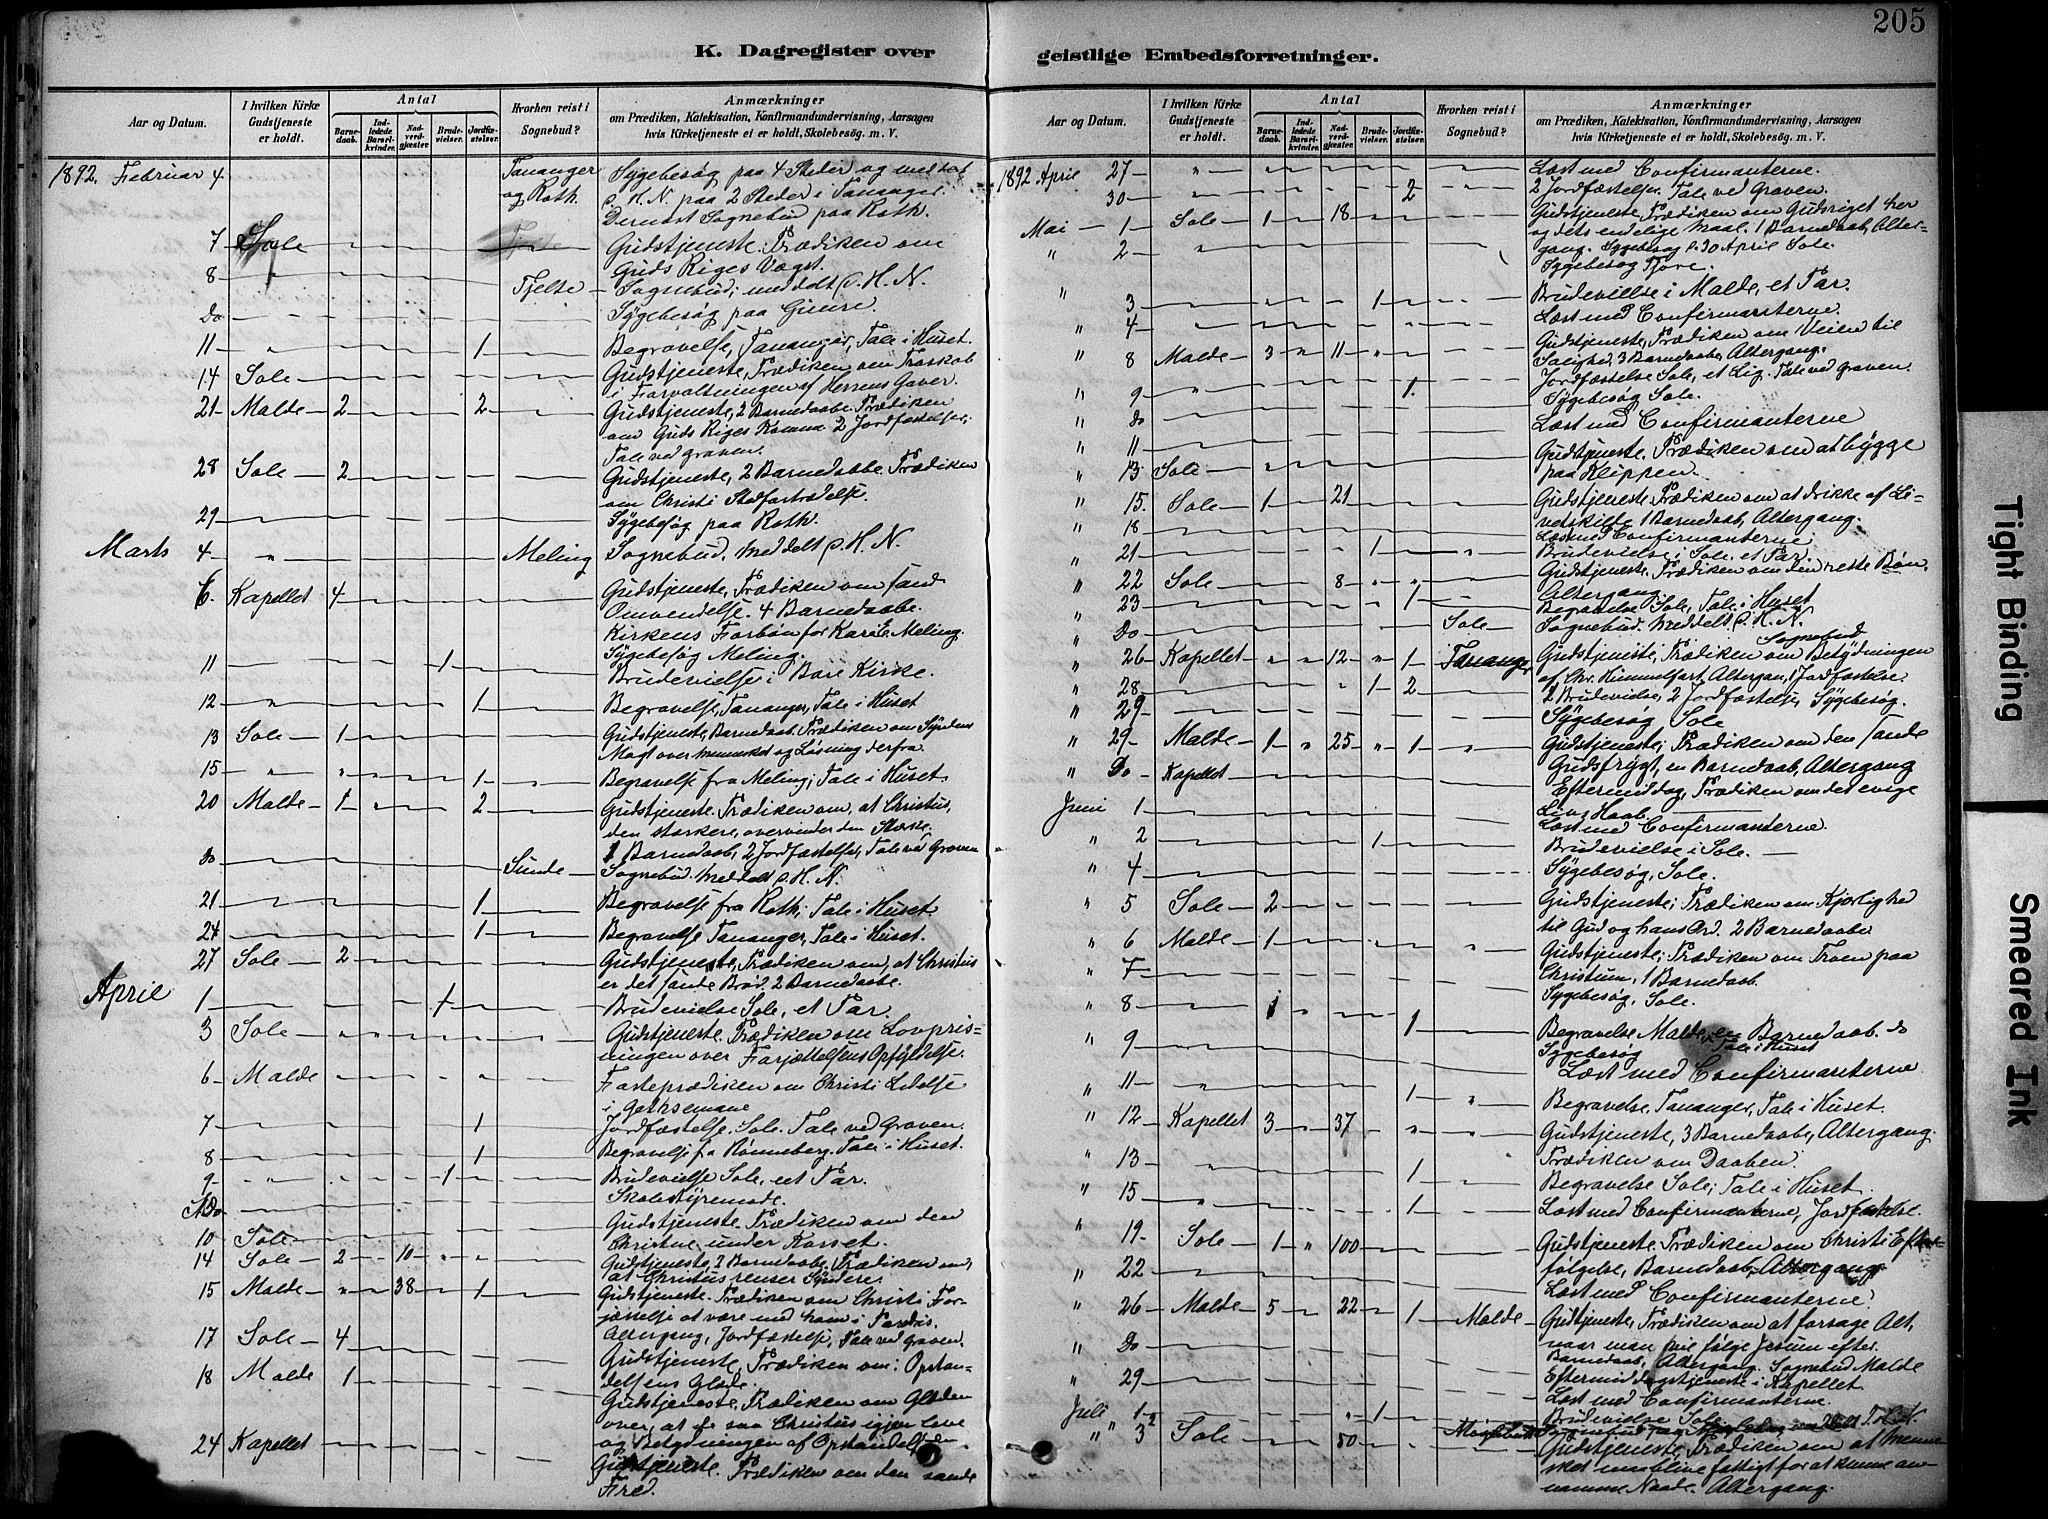 205
K. Dagregister over
Aar og Datum.
I hvilken Kirke Gudstjeneste er holdt.
Antal
Barnedaab.
Indledede Barselkvinder.
Nadverdgjæster.
Brudevielser.
Jordfæstelser.
Hvorhen reist i Sognebud?
Anmærkninger
om Prædiken, Katekisation, Konfirmandundervisning, Aarsagen
hvis Kirketjeneste ei er holdt, Skolebesøg. m. V.
1892. Februar 4 Tananger og Roth. Sygebesøg paa 4 Steder og meddelt
d. H. N. paa 2 Steder i Tananger.
Dernæst Sognebud paa Roth.
7 Sole Gudstjeneste. Prædiken om
Guds Riges Vægt.
8 " Tjelte Sognebud; meddelt d. H. N.
Do Sygebesøg paa
11 " 1 Begravelse, Tananger, Tale i Huset.
14 Sole Gudstjeneste, Prædiken om Troskab
i Forvaltningen af Herrens Gaver.
21 Malde 2 2 Gudstjeneste, 2 Barnedaabe. Prædiken
om Guds Riges Komme 2 Jordfæstelser,
Tale ved graven.
28 Sole 2 Gudstjeneste, 2 Barnedaabe. Prædiken
om Christi Stedfortrædelse.
29 Sygebesøg paa Roth.
Marts 4 " Meling Sognebud. Meddelt d. H. N.
6. Kapellet 4 Gudstjeneste, Prædiken om sand
Omvendelse. 4 Barnedaabe.
Kirkens Forbøn for Kari E. Meling.
Sygebesøg Meling.
11 1 Brudevielse i Bore Kirke.
12 " 1 Begravelse, Tananger, Tale i Huset
13 Sole 1 Gudstjeneste, Barnedaab. Prædiken om Syndens
Magt over Mennesket og Løsning derfra.
15 " 1 Begravelse fra Meling; Tale i Huset
20 Malde 1 2 Gudstjeneste. Prædiken om, at Christus,
den stærkere, overvinder den Stærke.
1 Barnedaab, 2 Jordfæstelser, Tale ved Graven
Do Sunde Sognebud. Meddelt d. H. N.
21 1 Begravelse fra Roth; Tale i Huset
24 1 Begravelse Tananger, Tale i Huset.
27 Sole 2 Gudstjeneste, Prædiken om, at Christus
er det sande Brød. 2 Barnedaabe.
April 1 1 Brudevielse Sole, et Par.
3 Sole Gudstjeneste. Prædiken om Lovpris-
ningen over Forjættelsens Opfyldelse.
6 Malde Fasteprædiken om Christi Lidelse
i Gethsemane
7 1 Jordfæstelse. Sole. Tale ved Graven.
8 1 Begravelse fra Rønneberg. Tale i Huset.
9 " 1 Brudevielse Sole, eet Par.
Do Skolestyremøde.
10 Sole Gudstjeneste. Prædiken om den
Christne under Korset.
14 Sole 2 10 Gudstjeneste, 2 Barnedaabe. Prædiken om,
at Christus renser Syndere.
15 Malde 38 1 Gudstjeneste. Prædiken om Christi For-
jættelse at være med ham i Paradis.
Altergang, Jordfæstelse, Tale ved graven.
17 Sole 4 Gudstjeneste, Prædiken om: Opstan-
delsens Glæde.
18 Malde 1 Gudstjeneste. Prædiken om Glæden
over, at se saa Christus igjen leve
og Betydningen af Opstandelsen
24 Kapellet Gudstjeneste. Prædiken om den sande
Fred.
geistlige Embedsforretninger.
Aar og Datum.
I hvilken Kirke Gudstjeneste er holdt.
Antal
Barnedaab.
Indledede Barselkvinder.
Nadverdgjæster.
Brudevielser.
Jordfæstelser.
Hvorhen reist i Sognebud?
Anmærkninger
om Prædiken, Katekisation, Konfirmandundervisning, Aarsagen
hvis Kirketjeneste ei er holdt, Skolebesøg. m. V.
1892 April 27 " Læst med Confirmanterne.
30 " 2 2 Jordfæstelser. Tale ved Graven.
Mai 1 Sole 1 18 Gudstjeneste, Prædiken om Gudsriget her
og dets endelige Maal. 1 Barnedaab, Alter-
gang. Sygebesøg d. 30 April Sole.
" 2 " Sygebesøg Tjore.
" 3 1 Brudevielse i Malde, et Par.
4 Læst med Confirmanterne.
" 8 Malde 3 11 Gudstjeneste, Prædiken om Veien til
Salighed, 3 Barnedaabe, Altergang.
" 9 " 1. Jordfæstelse Sole, et Lig. Tale ved graven.
" Do Sygebesøg Sole.
" 11 Læst med Confirmanterne
" 13 Sole Gudstjeneste. Prædiken om at bygge
paa Klippen.
" 15. Sole 1 21 Gudstjeneste. Prædiken om at drikke af Li-
vetskilte 1 Barnedaab, Altergang.
" 18 Læst med Confirmanterne
" 21 1 Brudevielse i Sole, et Par.
" 22 Sole 8 Gudstjeneste, Prædiken om den rette Bøn.
Altergang.
" 23 1 Begravelse Sole, Tale i Huset
" Do Sole Sognebud. Meddelt d. H. N.
" 26 Kapellet 12 1 Tananger Sognebud
Gudstjeneste, Prædiken om Betydningen
af Chr. Himmelfart, Altergan, 1 Jordfæstelse
" 28 1 2 2 Brudevielse, 2 Jordfæstelse, Sygebesøg.
" 29 Sygebesøg Sole
" 29 Malde 1 25 1 Gudstjeneste; Prædiken om den sande
Gudsfrygt, en Barnedaab, Altergang
" Do Kapellet Eftermiddag, Prædiken om det evige
Livs Haab.
Juni 1 Læst med Confirmanterne.
" 2 1 Brudevielse i Sole.
" 4 Sygebesøg, Sole.
" 5 Sole 2 Gudstjeneste; Prædiken om Kjærlighe
til Gud og hans Ord. 2 Barnedaabe
" 6 Malde 1 Gudstjeneste; Prædiken om Troen paa
Christum, 1 Barnedaab.
" 7 Sygebesøg, Sole.
" 8 1 1 Begravelse Malde, en Barnedaab. do
Tale i Huset
" 9 Sygebesøg
Læst med Confirmanterne
" 11 " 1 Begravelse Tananger, Tale i Huset.
" 12 Kapellet 3 37 Gudstjeneste, 3 Barnedaabe, Altergang.
Prædiken om Daaben.
" 13 1 Begravelse Sole, Tale i Huset
" 15 1 Læst med Confirmanterne, Jordfæstelse.
" 19 Sole 1 100 Gudstjeneste. Prædiken om Christi Efter-
følgelse, Barnedaab, Altergang
" 22 Læst med Confirmanterne.
" 26 Malde 5 22 1 Malde Gudstjeneste, Prædiken om at forsage Alt,
naar man vil følge Jesum efter.
Barnedaab, Altergang. Sognebud Malde
" Do Eftermiddagstjeneste i Kapellet
" 29 Læst med Confirmanterne.
Juli 1 1 Brudevielse Sole
" 3 Sole 50 Gudstjeneste, Prædiken om at Menne-
sket maa blive fattigt for at kunne an-
namme Naade. Altergang.
Tight Binding
Smeared Ink